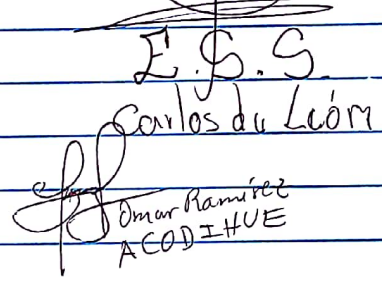 E.S.S.
Carlos de León
Omar Ramírez
ACODIHUE